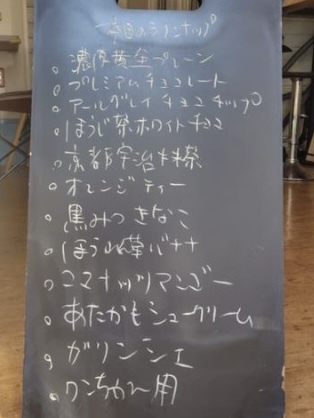 今日のラインナップ
濃厚黄金プレーン
プレミアムチョコレート
アールグレイチョコチップ
ほうじ茶ホワイトチョコ
京都宇治抹茶
オレンジティー
黒みつきなこ
バナナ
ココナッツマンゴー
あたかもシュークリーム
ガリンシェ
ワンちゃん用